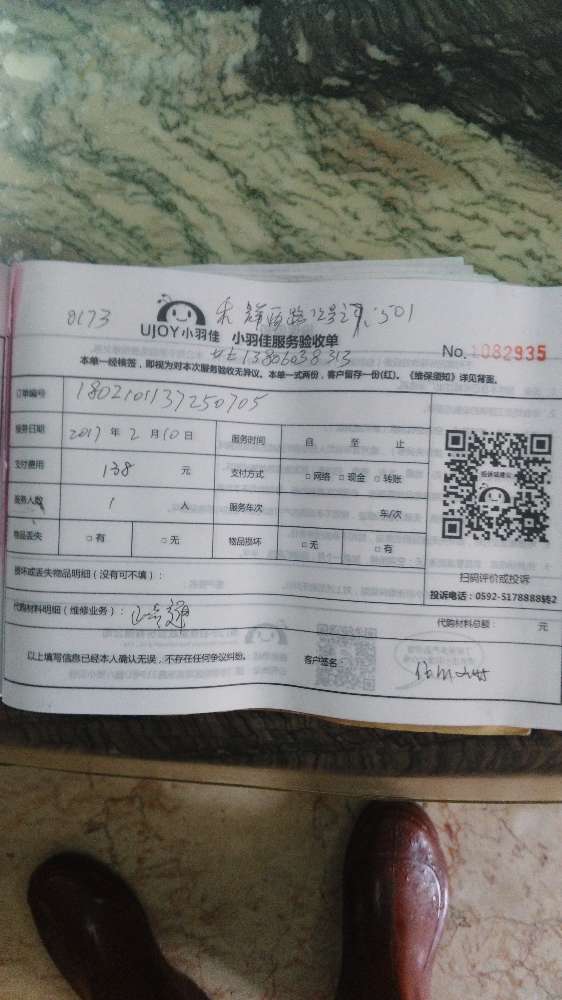 0173
UJOY小羽佳 小羽佳服务验收单
No. 1082935
本单一经核签，即视为对本次服务验收无异议。本单一式两份，客户留存一份(红)。《维保须知》详见背面。
订单编号 1802101137250705
服务日期 2017年2月10日 服务时间 自 至 止
支付费用 138 元 支付方式 □网络 □现金 □转账
服务人数 1 人 服务车次 车/次
物品丢失 □有 □无 物品损坏 □无 □有
扫码评价或投诉
投诉电话：0592-5178888转2
损坏或丢失物品明细（没有可不填）：
代购材料明细（维修业务）：
代购材料总额： 元
以上填写信息已经本人确认无误，不存在任何争议纠纷。 客户签名：